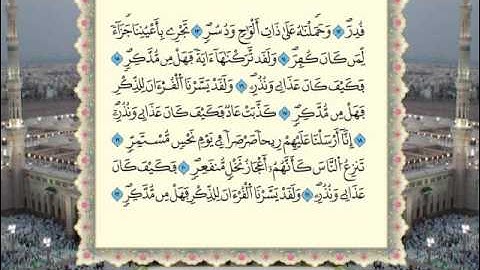 قُدِرَ ۝ وَحَمَلْنَاهُ عَلَىٰ ذَاتِ أَلْوَاحٍ وَدُسُرٍ ۝ تَجْرِي بِأَعْيُنِنَا جَزَاءً
لِمَن كَانَ كُفِرَ ۝ وَلَقَد تَّرَكْنَاهَا ءَايَةً فَهَلْ مِن مُّدَّكِرٍ ۝
فَكَيْفَ كَانَ عَذَابِي وَنُذُرِ ۝ وَلَقَدْ يَسَّرْنَا الْقُرْءَانَ لِلذِّكْرِ
فَهَلْ مِن مُّدَّكِرٍ ۝ كَذَّبَتْ عَادٌ فَكَيْفَ كَانَ عَذَابِي وَنُذُرِ ۝
إِنَّا أَرْسَلْنَا عَلَيْهِمْ رِيحًا صَرْصَرًا فِي يَوْمِ نَحْسٍ مُّسْتَمِرٍّ ۝
تَنزِعُ النَّاسَ كَأَنَّهُمْ أَعْجَازُ نَخْلٍ مُّنقَعِرٍ ۝ فَكَيْفَ كَانَ
عَذَابِي وَنُذُرِ ۝ وَلَقَدْ يَسَّرْنَا الْقُرْءَانَ لِلذِّكْرِ فَهَلْ مِن مُّدَّكِرٍ ۝